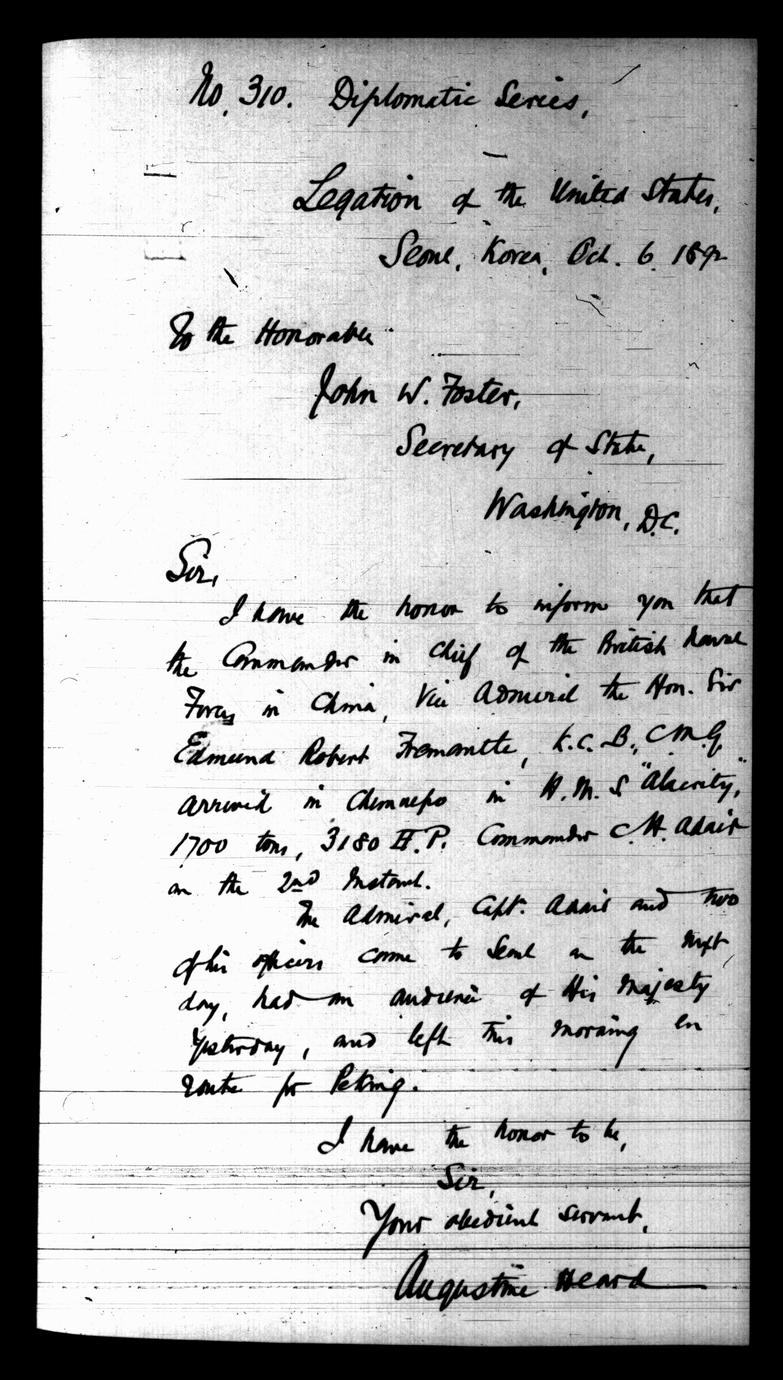 No. 310. Diplomatic Series.
Legation of the United States,
Seoul, Korea, Oct. 6. 1892
To the Honorable
John W. Foster,
Secretary of State,
Washington, D.C.
Sir,
I have the honor to inform you that
the Commander in Chief of the British Naval
Forces in China, Vice Admiral the Hon. Sir
Edmund Robert Fremantle, K.C.B., C.M.G.
arrived in Chemulpo in H.M.S "Alacrity,"
1700 tons, 3180 H.P. Commander C.H. Adair
on the 2nd Instant.
The Admiral, Capt. Adair and two
of his officers came to Seoul on the next
day, had an audience of His Majesty
Yesterday, and left this morning en
route for Peking.
I have the honor to be,
Sir,
Your obedient servant,
Augustine Heard